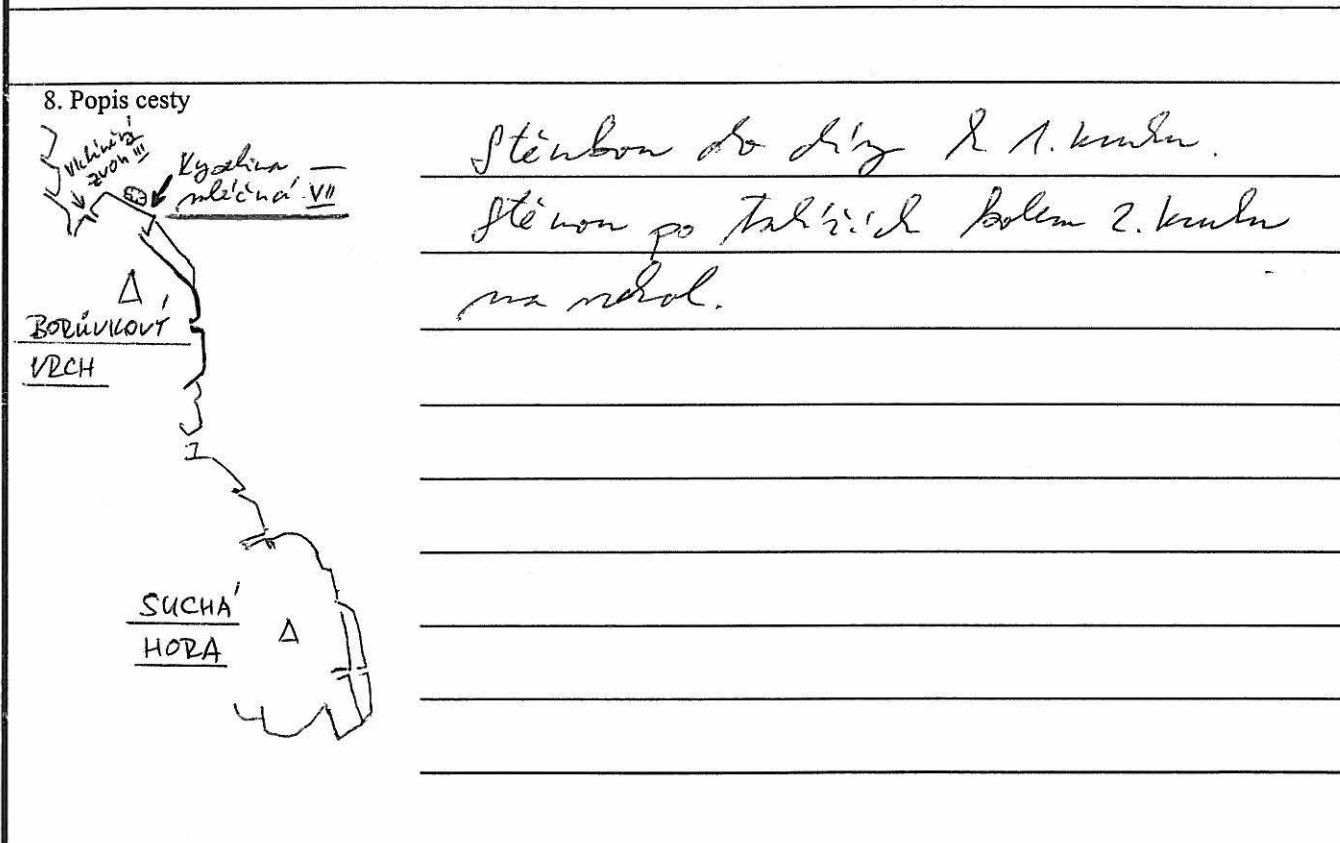 8. Popis cesty
Vklíněný
zvon III
Kyselina
mléčná VII
BORŮVKOVÝ
VRCH
SUCHÁ
HORA
Stěnkou do díry k 1. kruhu.
Stěnou po talířích kolem 2. kruhu
na vrchol.